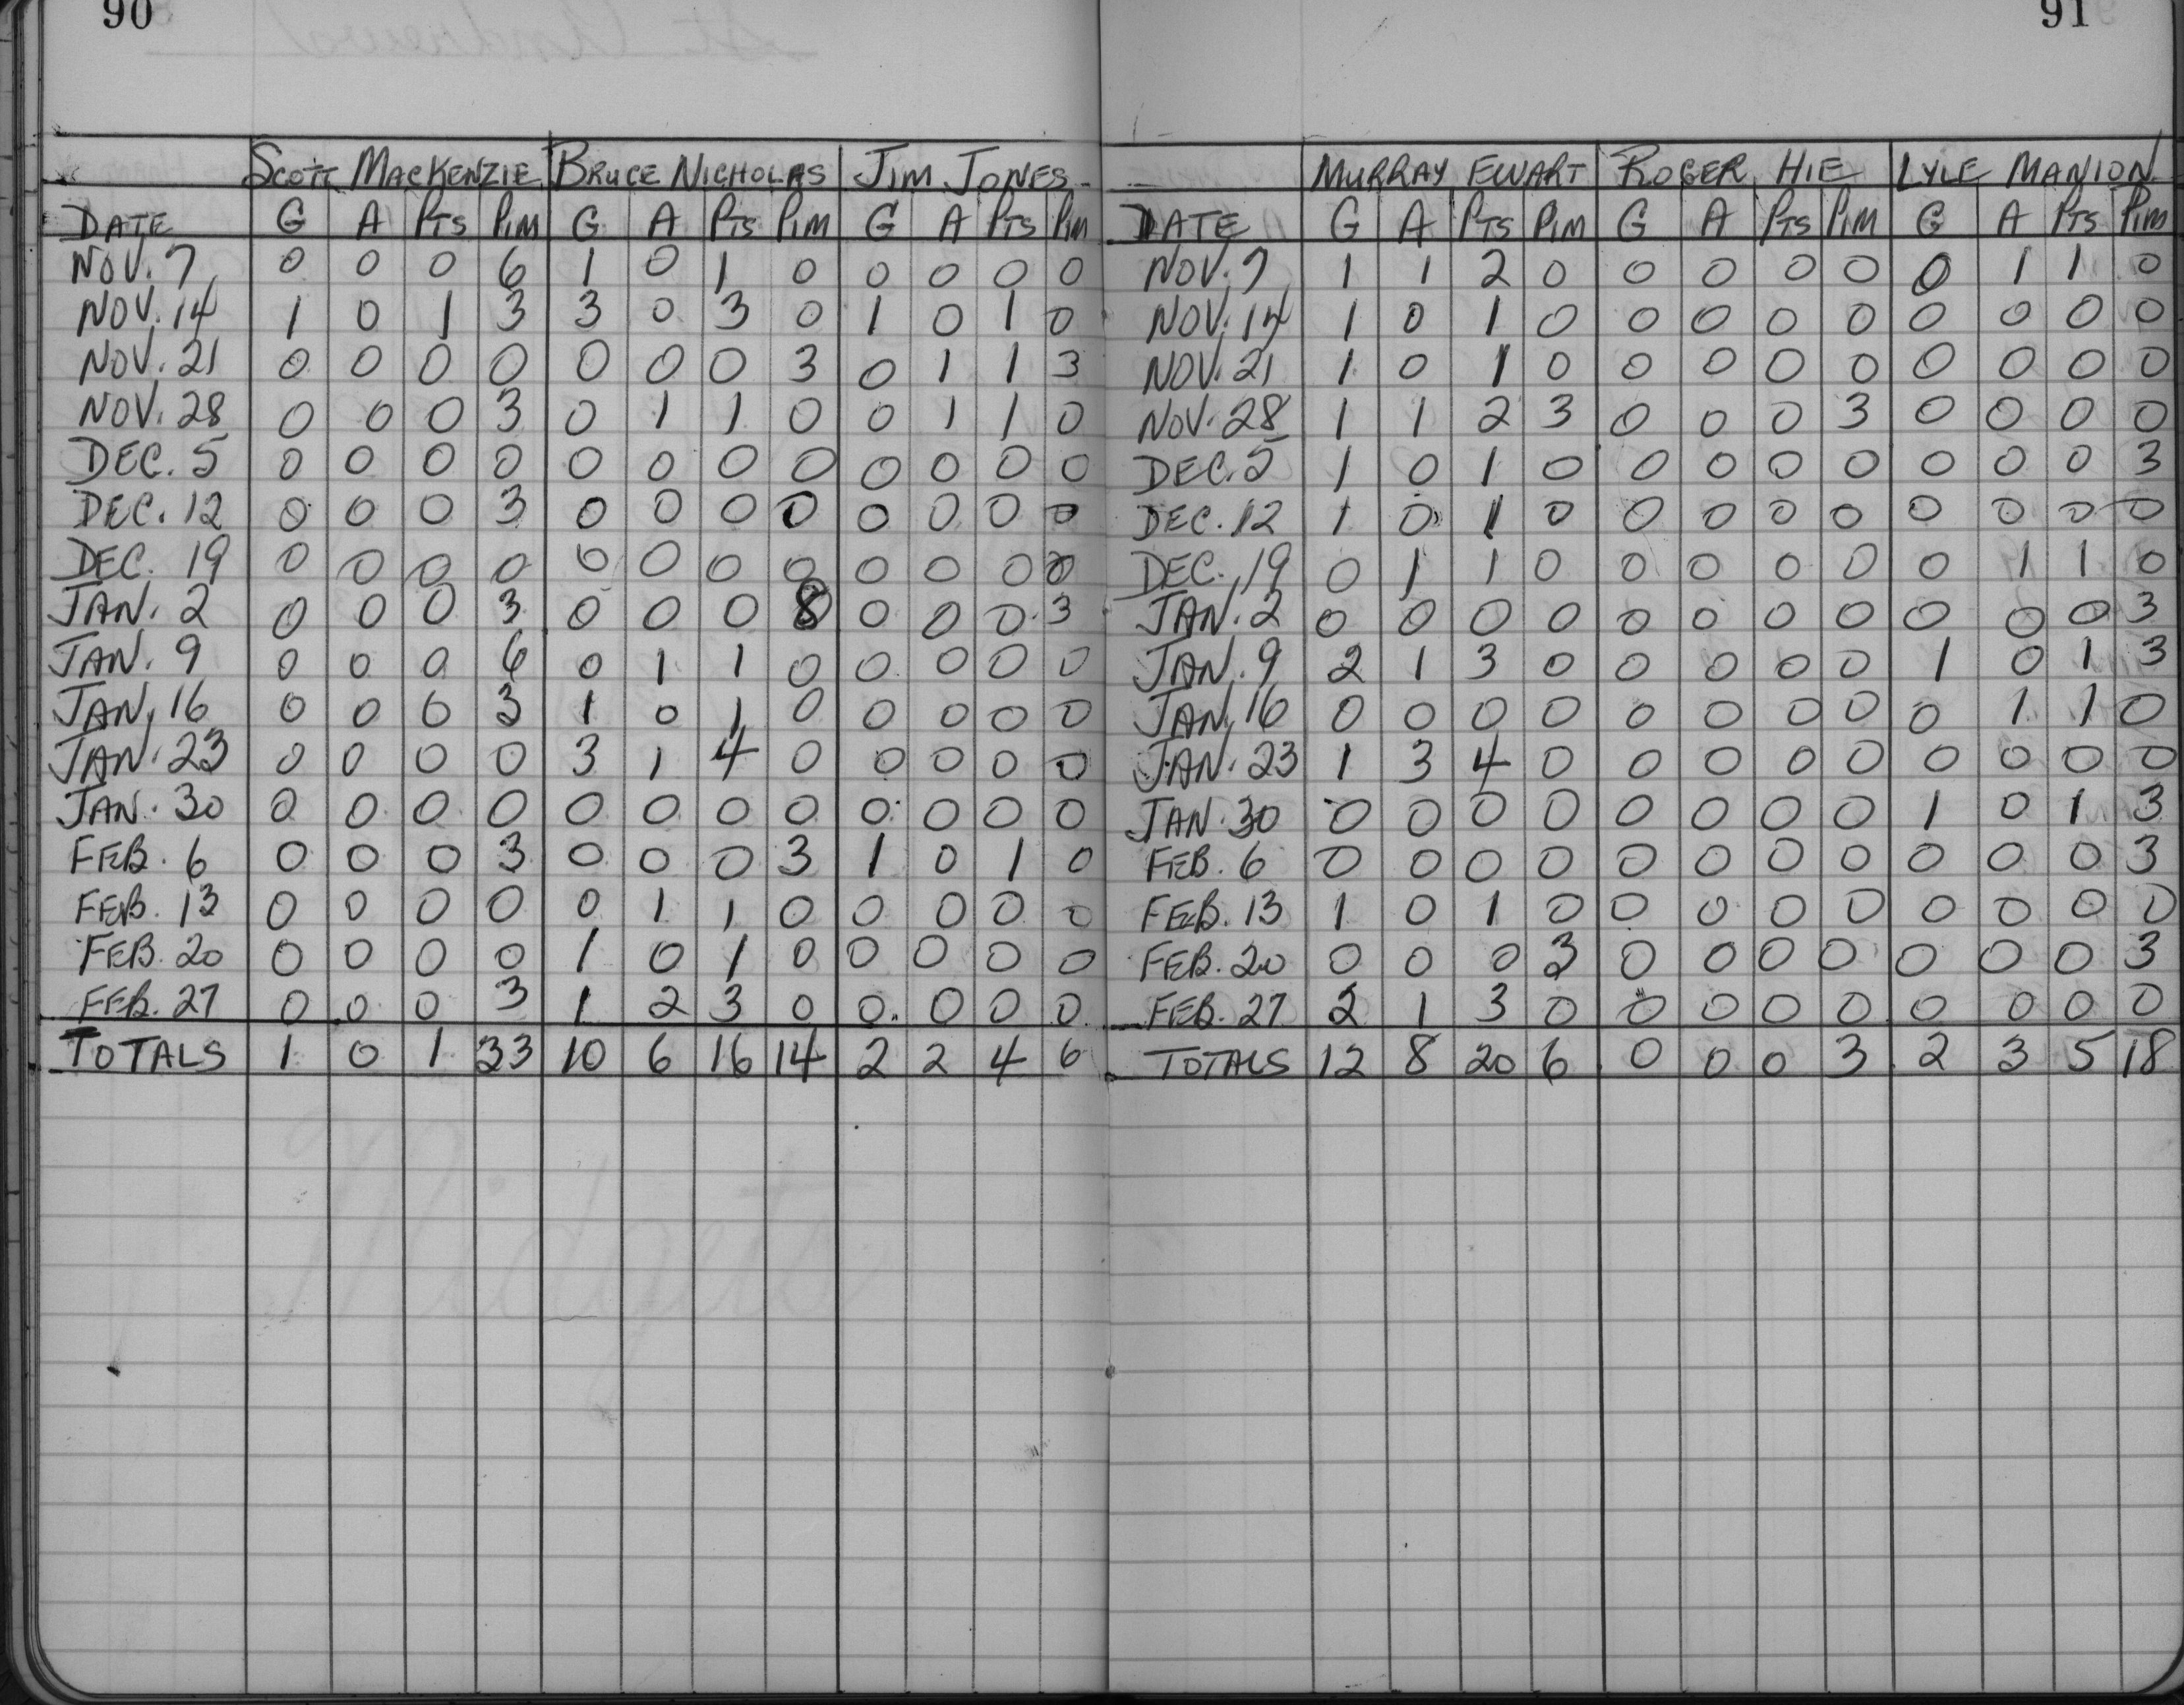 90
SCOTT MACKENZIE BRUCE NICHOLAS JIM JONES
DATE G A PTS PIM G A PTS PIM G A PTS PIM
NOV. 7 0 0 0 6 1 0 1 0 0 0 0 0
NOV. 14 1 0 1 3 3 0 3 0 1 0 1 0
NOV. 21 0 0 0 0 0 0 0 3 0 1 1 3
NOV. 28 0 0 0 3 0 1 1 0 0 1 1 0
DEC. 5 0 0 0 0 0 0 0 0 0 0 0 0
DEC. 12 0 0 0 3 0 0 0 0 0 0 0 0
DEC. 19 0 0 0 0 0 0 0 0 0 0 0 0
JAN. 2 0 0 0 3 0 0 0 8 0 0 0 3
JAN. 9 0 0 0 6 0 1 1 0 0 0 0 0
JAN. 16 0 0 0 3 1 0 1 0 0 0 0 0
JAN. 23 0 0 0 0 3 1 4 0 0 0 0 0
JAN. 30 0 0 0 0 0 0 0 0 0 0 0 0
FEB. 6 0 0 0 3 0 0 0 3 1 0 1 0
FEB. 13 0 0 0 0 0 1 1 0 0 0 0 0
FEB. 20 0 0 0 0 1 0 1 0 0 0 0 0
FEB. 27 0 0 0 3 1 2 3 0 0 0 0 0
TOTALS 1 0 1 33 10 6 16 14 2 2 4 6
91
MURRAY EWART ROGER HIE LYLE MANION
DATE G A PTS PIM G A PTS PIM G A PTS PIM
NOV. 7 1 1 2 0 0 0 0 0 0 1 1 0
NOV. 14 1 0 1 0 0 0 0 0 0 0 0 0
NOV. 21 1 0 1 0 0 0 0 0 0 0 0 0
NOV. 28 1 1 2 3 0 0 0 3 0 0 0 0
DEC. 5 1 0 1 0 0 0 0 0 0 0 0 3
DEC. 12 1 0 1 0 0 0 0 0 0 0 0 0
DEC. 19 0 1 1 0 0 0 0 0 0 1 1 0
JAN. 2 0 0 0 0 0 0 0 0 0 0 0 3
JAN. 9 2 1 3 0 0 0 0 0 1 0 1 3
JAN. 16 0 0 0 0 0 0 0 0 0 1 1 0
JAN. 23 1 3 4 0 0 0 0 0 0 0 0 0
JAN. 30 0 0 0 0 0 0 0 0 1 0 1 3
FEB. 6 0 0 0 0 0 0 0 0 0 0 0 3
FEB. 13 1 0 1 0 0 0 0 0 0 0 0 0
FEB. 20 0 0 0 3 0 0 0 0 0 0 0 3
FEB. 27 2 1 3 0 0 0 0 0 0 0 0 0
TOTALS 12 8 20 6 0 0 0 3 2 3 5 18